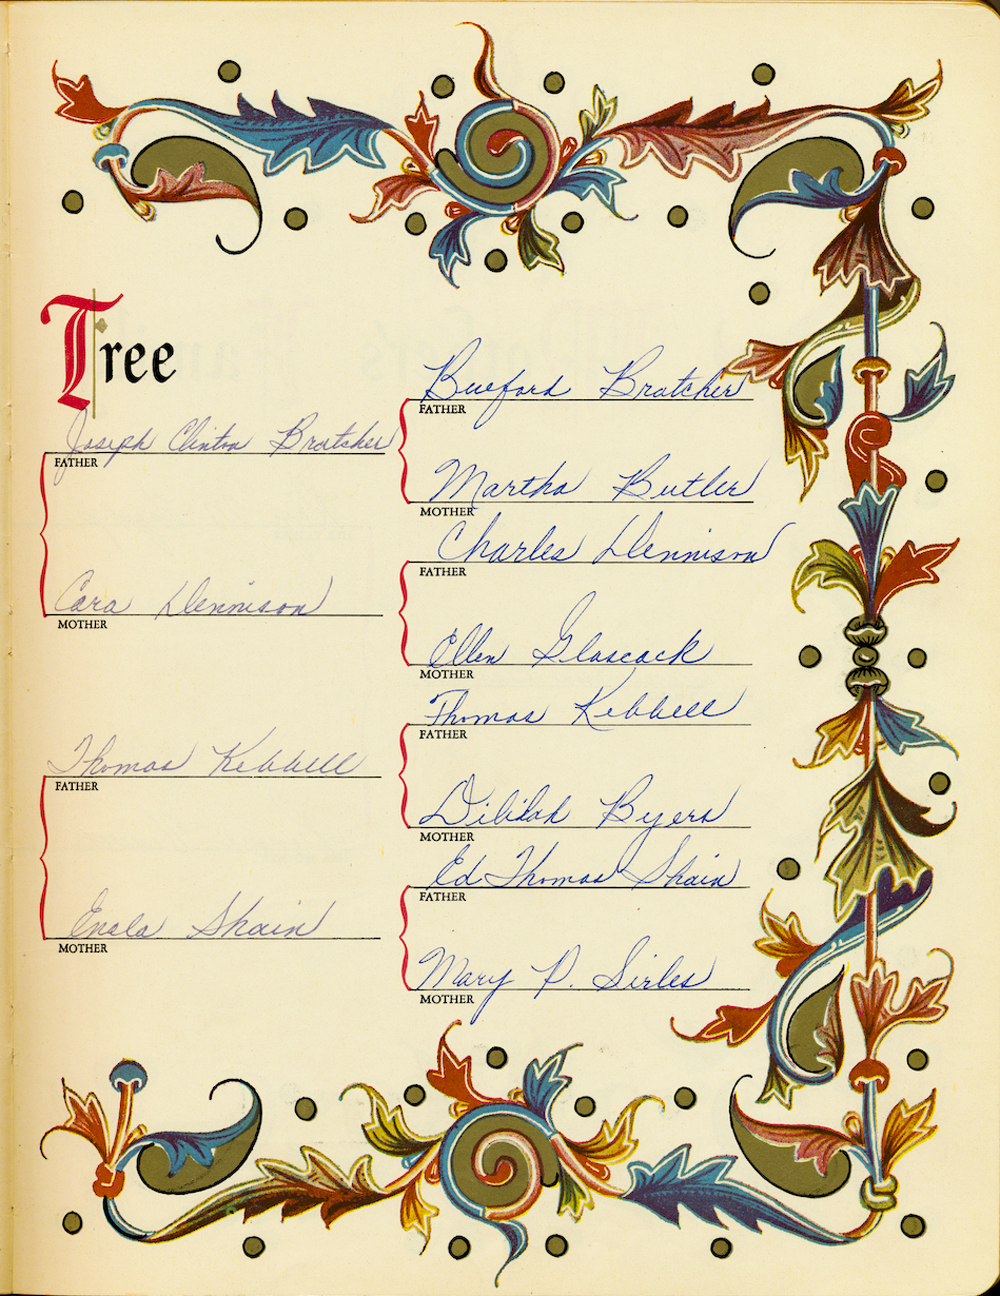 Tree
Bueford Bratcher
FATHER
Joseph Clinton Bratcher
FATHER
Martha Butler
MOTHER
Charles Dennison
FATHER
Cara Dennison
MOTHER
Ellen Glascock
MOTHER
Thomas Kebbell
FATHER
Thomas Kebbell
FATHER
Dililah Byers
MOTHER
Ed Thomas Shain
FATHER
Enola Shain
MOTHER
Mary P. Sirles
MOTHER